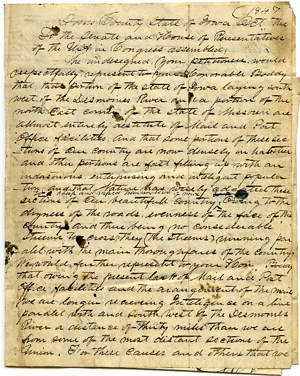 1847
County State of Iowa Oct. the
To the Senate and House of Representatives
of the U.S.A in Congress assembled.
The undersigned, (your petitioners) would
respectfully represent to your Honorable Body
that, that portion of the state of Iowa laying south
west of the Desmoines River and a portion of the
north East county of the state of Missouri are
almost entirely destitute of Mail and Post
Office facilities, and that some portions of these sec-
tions of our country are now densely inhabited
and other portions are fast filling up with an
industrious, enterprising and inteligent popula-
tion, and that Nature has wisely adapted these
sections of our beautifull country Owing to the
dryness of the roads, evenness of the face of the
Country and there being no considerable
streams to cross They (the streams) running par-
alel with the main thoroughfares of the country
We would further represent to your Hon. Body
that owing the present lack of Mail and Post
Office facilities and the arrangement of the mails
We are longer receiving Inteligence on a line
paralel north and south west of the Desmoines
River a distance of thirty miles than we are
from some of the most distant sections of the
Union. For these causes and others that we